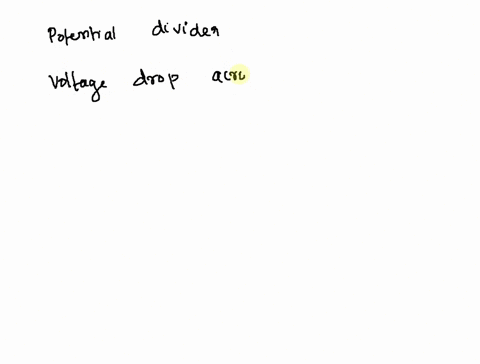 Potential divider
Voltage drop acro